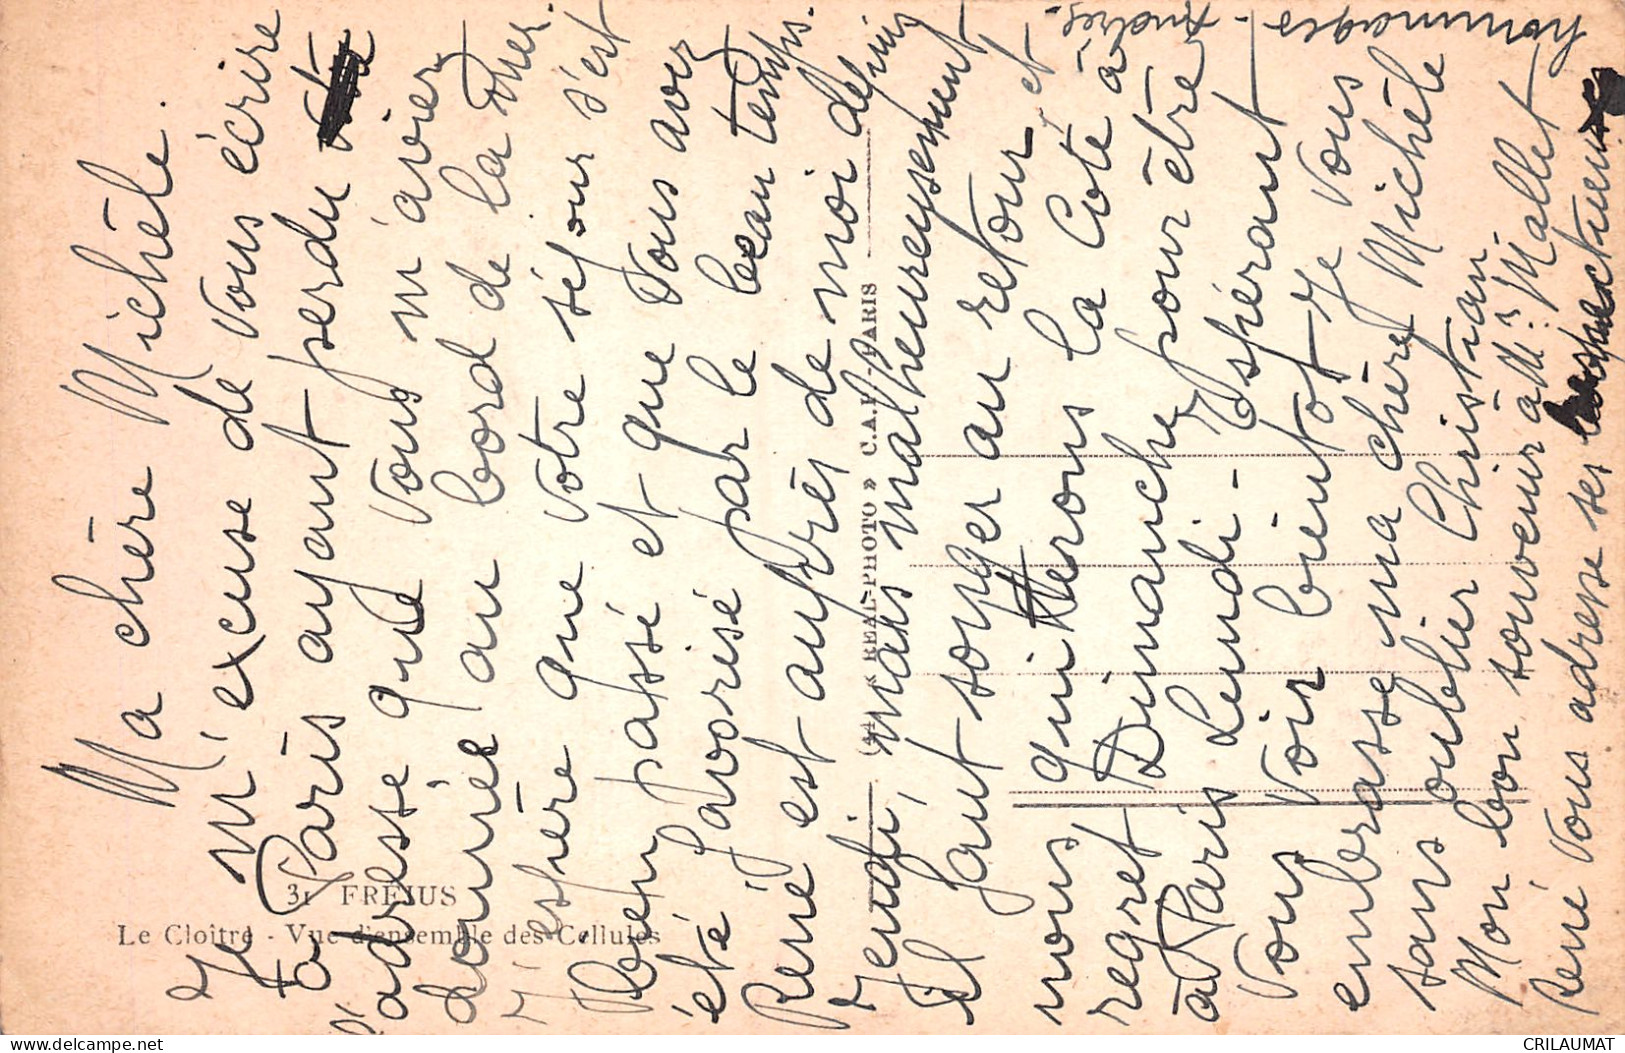 Ma chère Michèle.
Je m'excuse de vous écrire
à Paris ayant perdu
l'adresse que vous m'aviez
donnée au bord de la mer.
J'espère que votre séjour s'est
bien passé et que vous avez
été favorisé par le beau temps.
René est auprès de moi depuis
Jeudi, mais malheureusement
il faut songer au retour et
nous quitterons la Côte à
regret Dimanche pour être
à Paris Lundi - Espérant
vous voir bientôt Je vous
embrasse ma chère Michèle
sans oublier Christian.
Mon bon souvenir à M: Mallet
René vous adresse ses respectueux
hommages. Andrée.
31 FRÉJUS
Le Cloître - Vue d'ensemble des Cellules
« REAL-PHOTO » C.A.P. PARIS
delcampe.net
CRILAUMAT